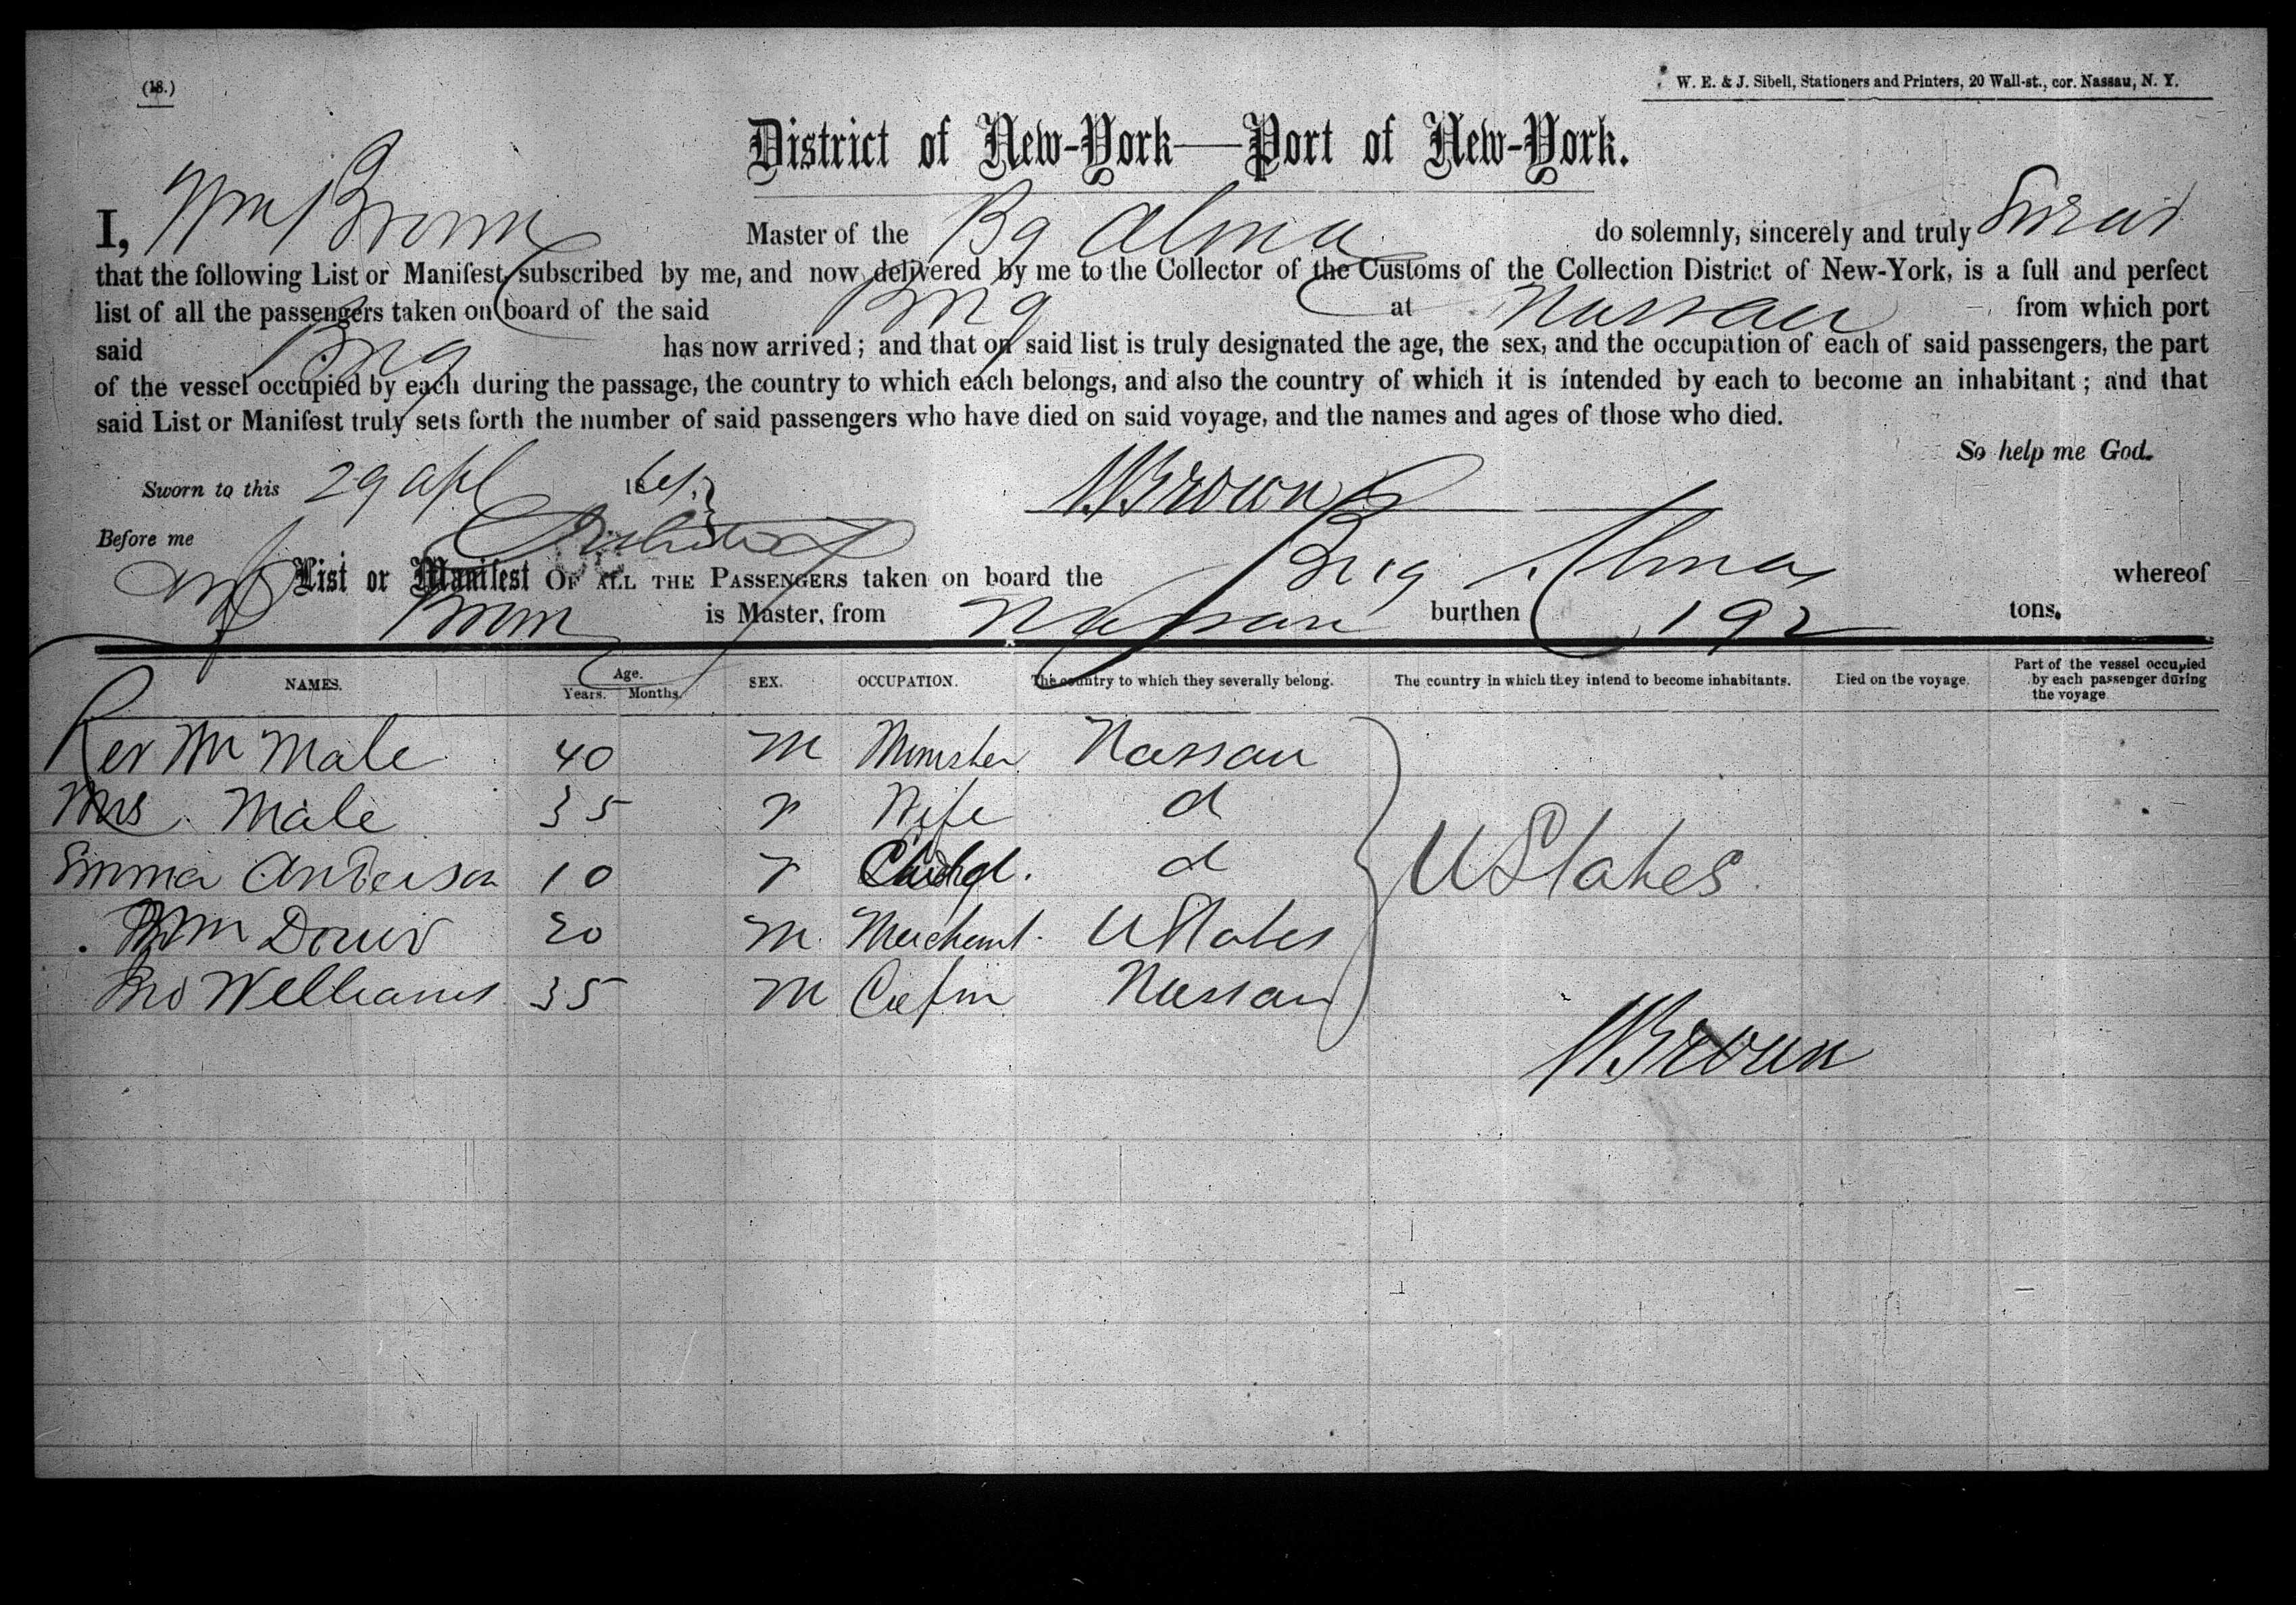 (18.)
W. E. & J. Sibell, Stationers and Printers, 20 Wall-st., cor. Nassau, N. Y.
District of New-York—Port of New-York.
I, Wm Brown Master of the Bg Alma do solemnly, sincerely and truly Swear
that the following List or Manifest, subscribed by me, and now delivered by me to the Collector of the Customs of the Collection District of New-York, is a full and perfect
list of all the passengers taken on board of the said Brig at Nassau from which port
said Brig has now arrived; and that on said list is truly designated the age, the sex, and the occupation of each of said passengers, the part
of the vessel occupied by each during the passage, the country to which each belongs, and also the country of which it is intended by each to become an inhabitant; and that
said List or Manifest truly sets forth the number of said passengers who have died on said voyage, and the names and ages of those who died.
So help me God.
Sworn to this 29 Apl 186 W Brown
Before me
List or Manifest OF ALL THE PASSENGERS taken on board the Brig Alma whereof
Brown is Master, from Nassau burthen 192 tons.
NAMES. Age. Years. Months. SEX. OCCUPATION. The country to which they severally belong. The country in which they intend to become inhabitants. Died on the voyage. Part of the vessel occupied by each passenger during the voyage
Rev Mr Male 40 M Minister Nassau
Mrs Male 35 F Wife d
Emma Anderson 10 F Child. d UStates
Wm 20 M Merchant UStates
Williams 35 M Nassau
W Brown